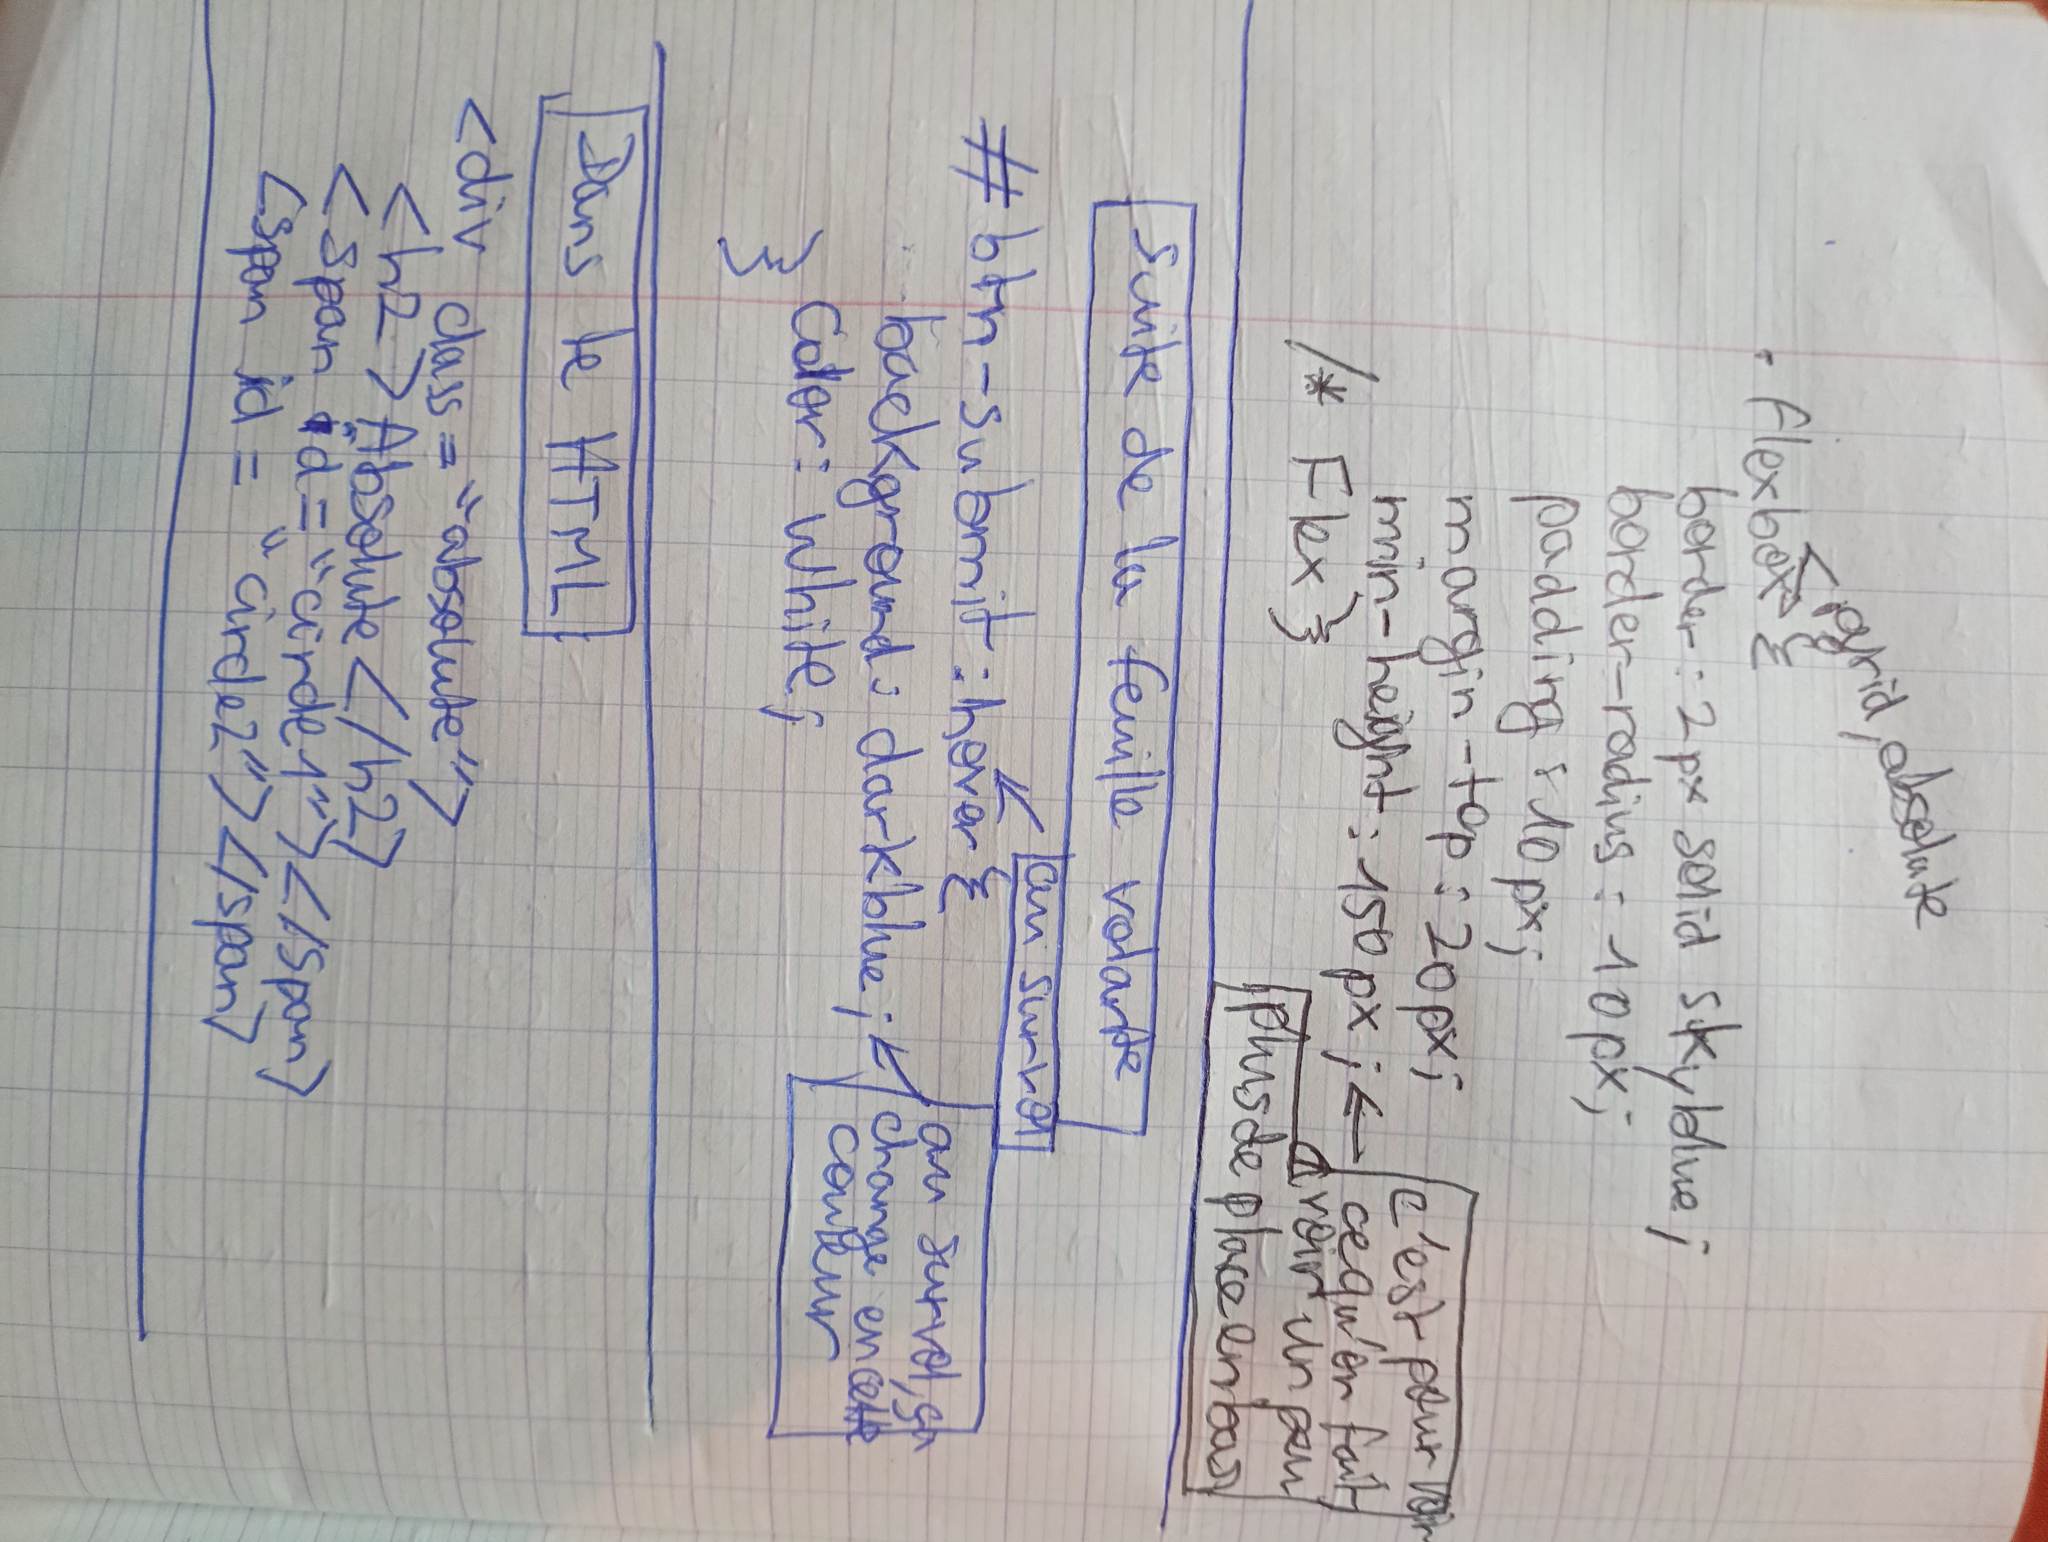 , grid, absolute
. flexbox {
border : 2px solid skyblue ;
border-radius : 10px ;
padding : 10px ;
margin-top : 20px ;
min-height : 150px ; ←
c'est pour voir
ce qu'on fait
avoir un peu
plus de place en bas
/* Flex }
Suite de la feuille volante
au survol
#btn-submit :hover {
background : darkblue ; ←
au survol, on
change en cette
couleur
Color : White ;
}
Dans le HTML
<div class = "absolute">
<h2> Absolute </h2>
<span id = "circle1"></span>
<span id = "circle2"></span>